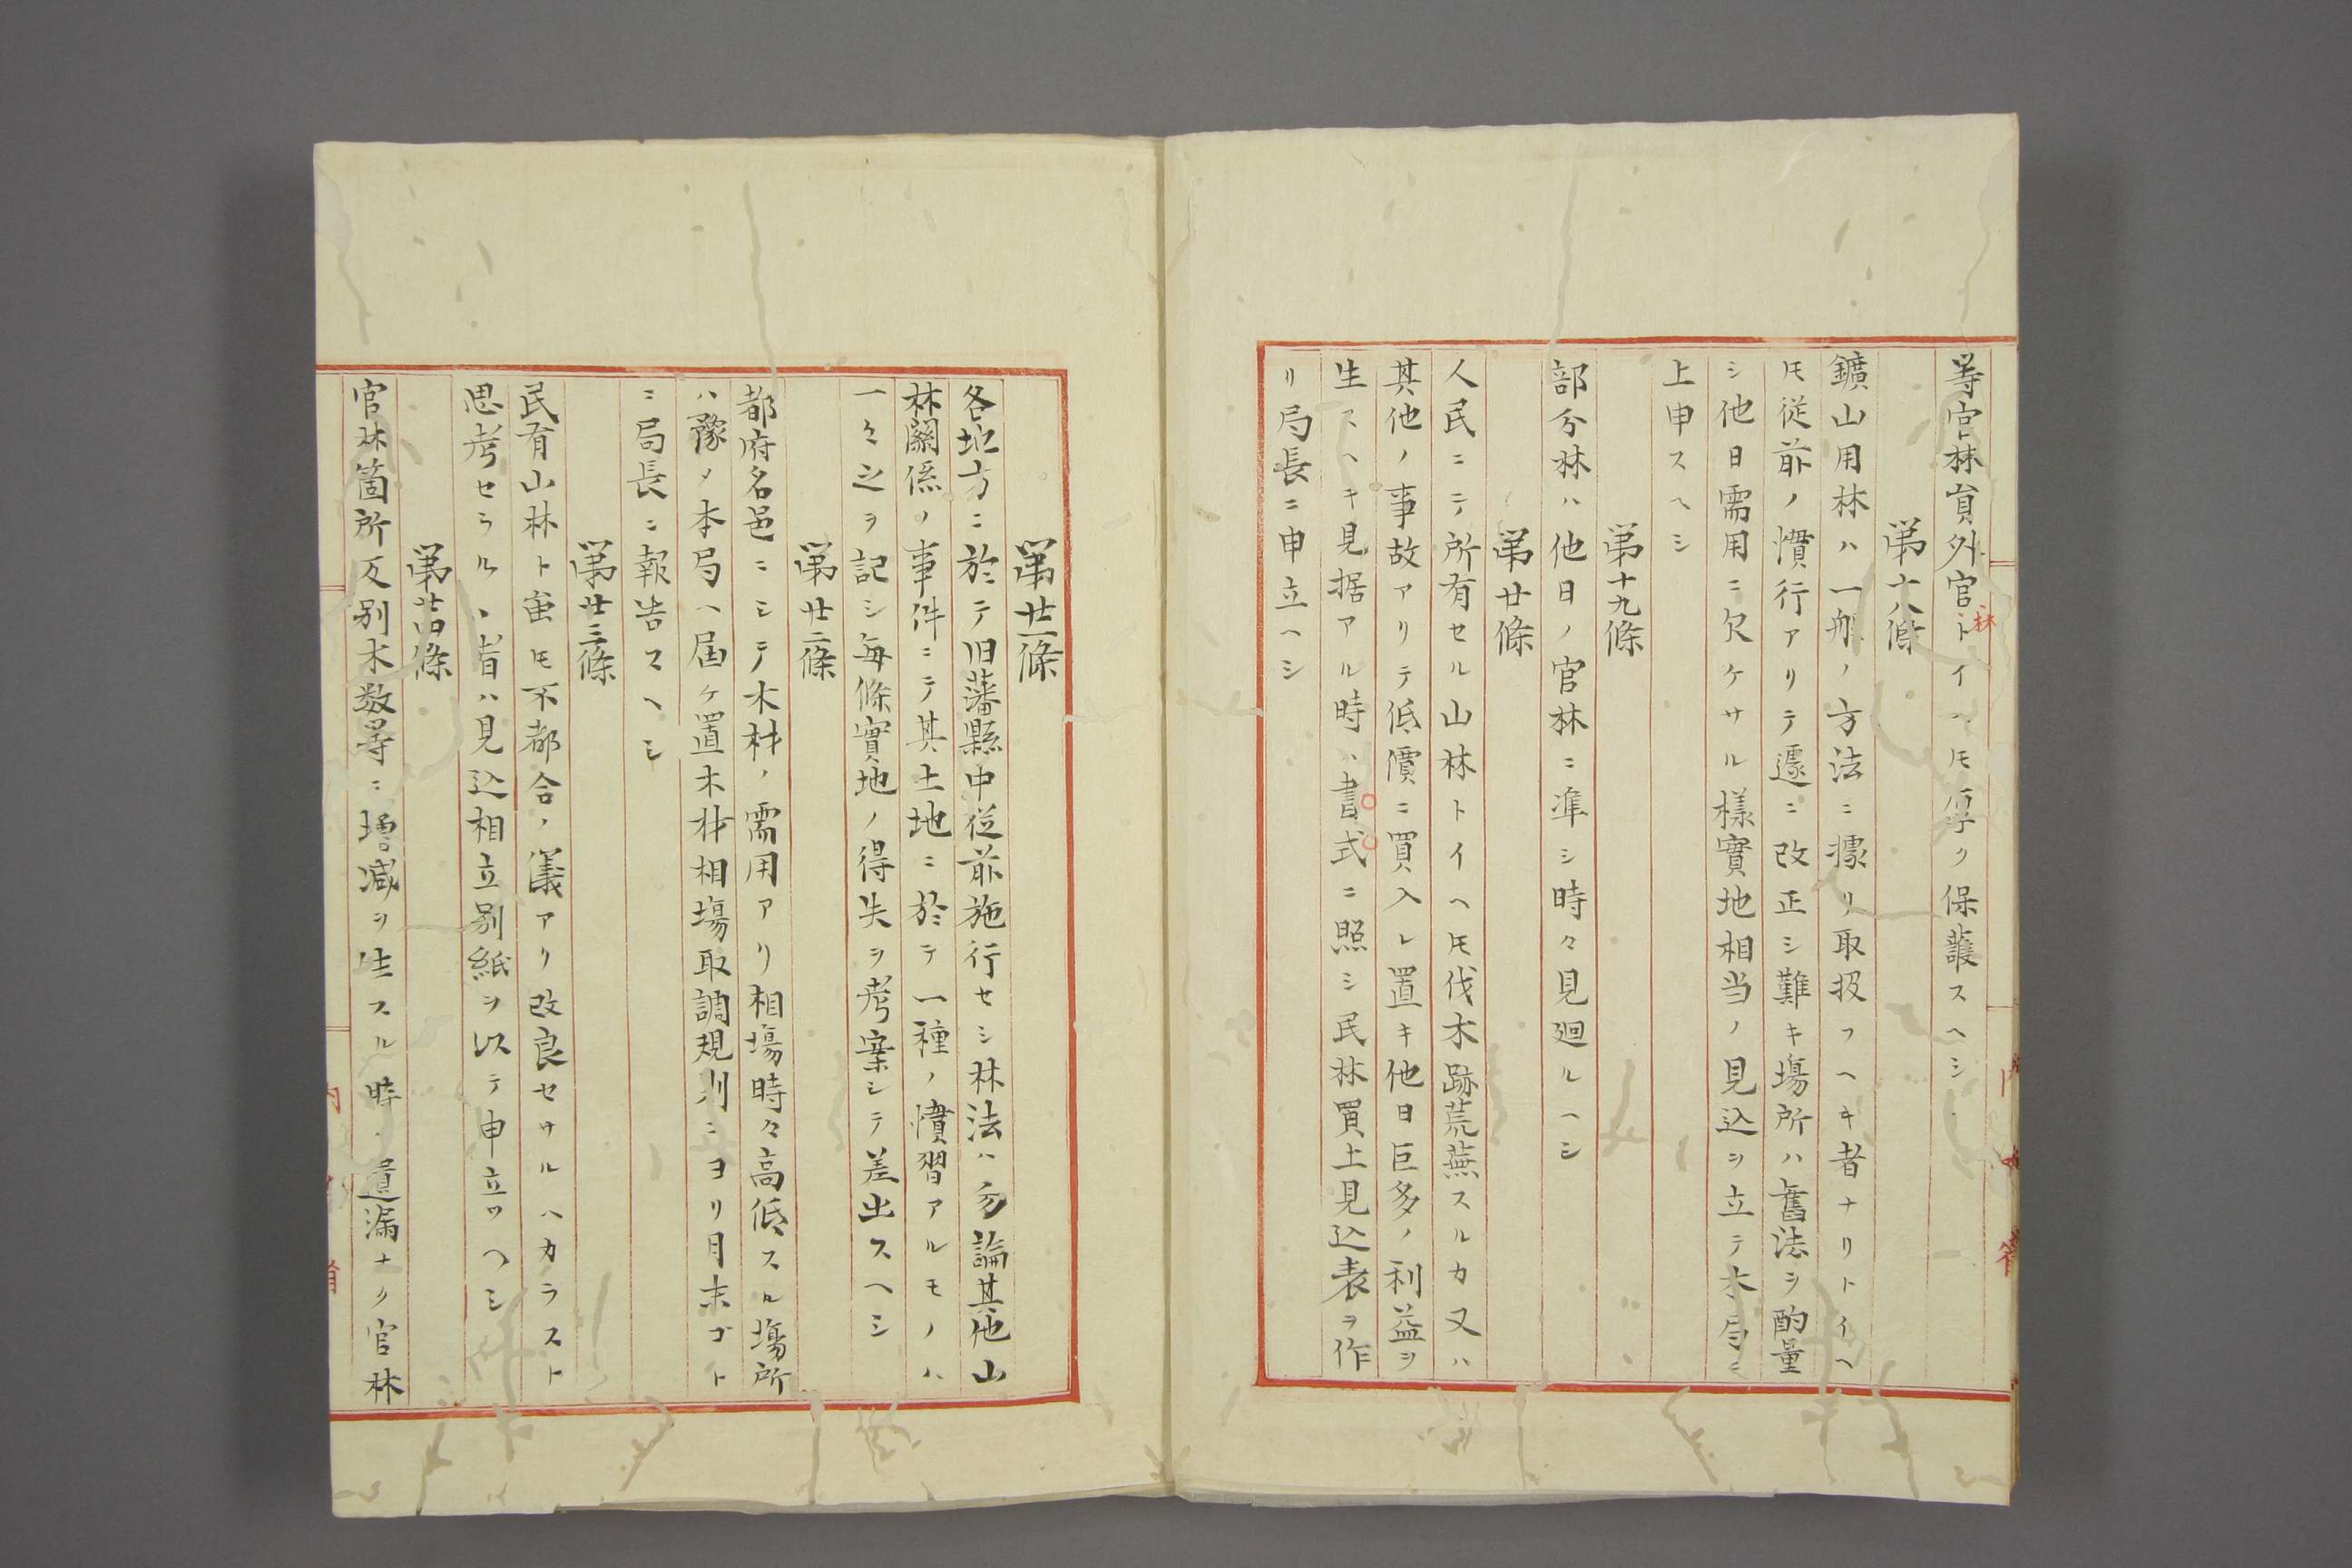 等官林貟外官林トイヘ𪜈厚ク保護スヘシ
第十八條
鑛山用林ハ一般ノ方法ニ據リ取扱フヘキ者ナリトイヘ
𪜈従前ノ慣行アリテ遽ニ改正シ難キ場所ハ舊法ヲ酌量
シ他日需用ニ欠ケサル樣實地相当ノ見込ヲ立テ本局ニ
上申スヘシ
第十九條
部分林ハ他日ノ官林ニ準シ時々見廻ルヘシ
第廿條
人民ニテ所有セル山林トイヘ𪜈伐木跡荒蕪スルカ又ハ
其他ノ事故アリテ低價ニ買入レ置キ他日巨多ノ利益ヲ
生スヘキ見据アル時ハ書式ニ照シ民林買上見込表ヲ作
リ局長ニ申立ヘシ
第廿一條
各地方ニ於テ旧藩縣中従前施行セシ林法ハ勿論其他山
林關係ノ事件ニテ其土地ニ於テ一種ノ慣習アルモノハ
一々之ヲ記シ每條實地ノ得失ヲ考案シテ差出スヘシ
第廿二條
都府名邑ニシテ木材ノ需用アリ相場時々高低スル場所
ハ豫メ本局ヘ届ケ置木材相場取調規則ニヨリ月末ゴト
ニ局長ニ報告スヘシ
第廿三條
民有山林ト雖𪜈不都合ノ儀アリ改良セサルヘカラスト
思考セラルヽ者ハ見込相立別紙ヲ以テ申立ツヘシ
第廿四條
官林箇所反別木数等ニ増減ヲ生スル時ハ遺漏ナク官林
内務省